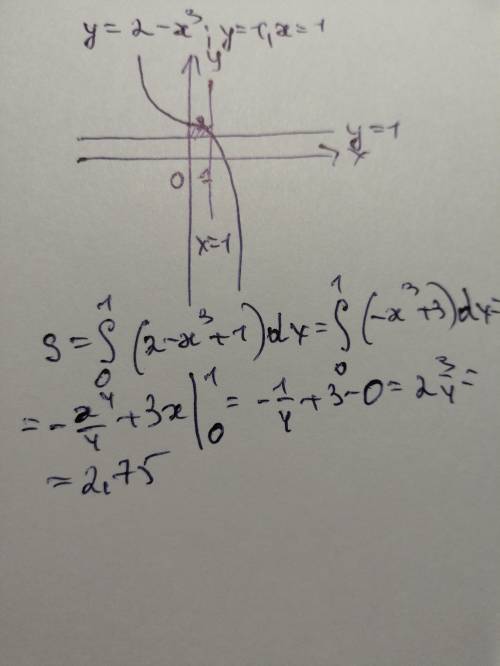 y = 2 - x³; y = 1, x = 1
y
y = 1
x
0 1
x = 1
S = ∫₀¹ (2 - x³ + 1) dx = ∫₀¹ (-x³ + 3) dx =
= - x⁴/4 + 3x |₀¹ = - 1/4 + 3 - 0 = 2 3/4 =
= 2,75